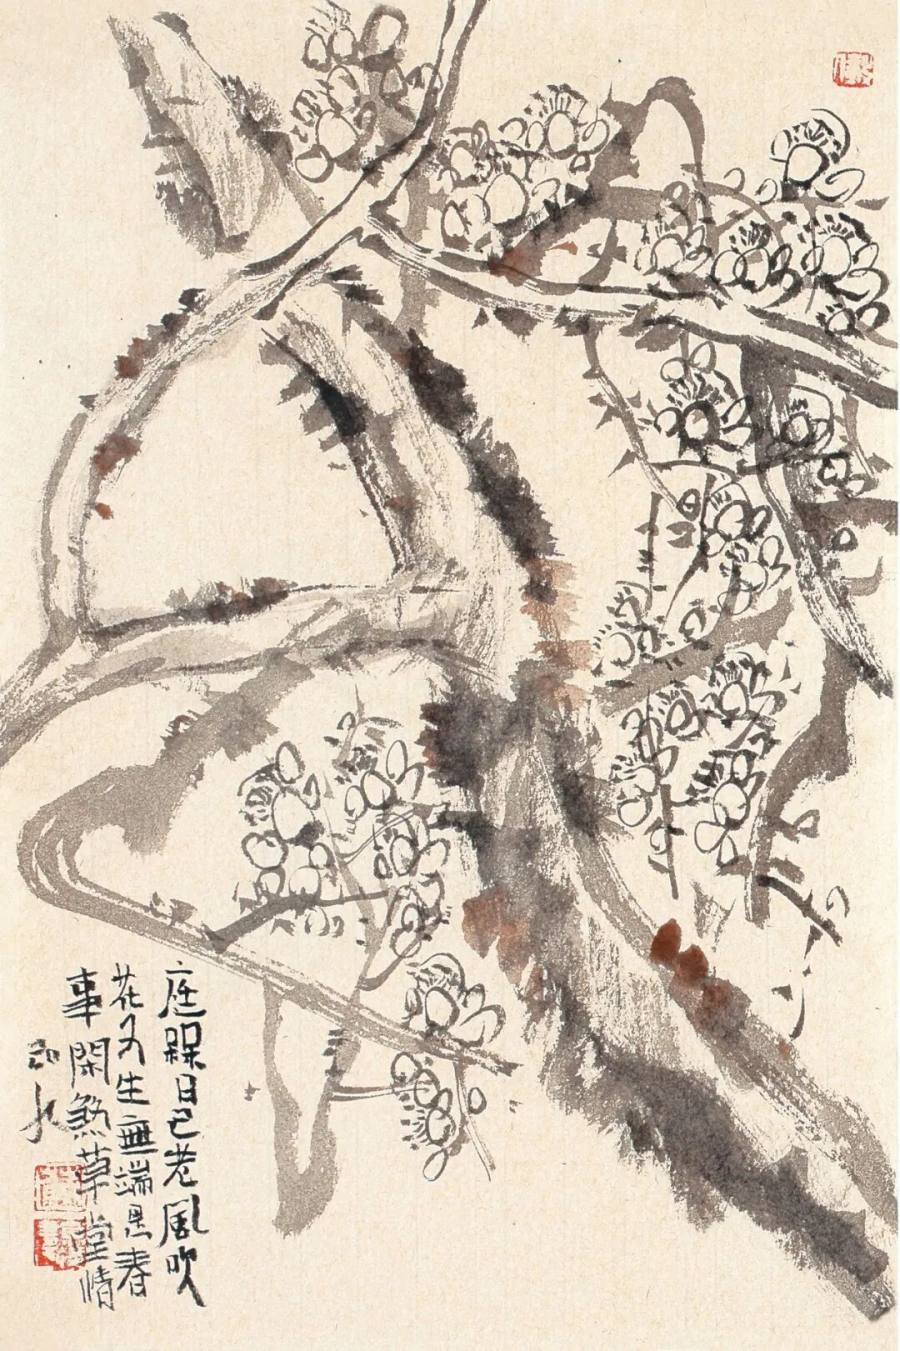 庭槑日已老風吹
花又生無端思春
事閑煞草堂情